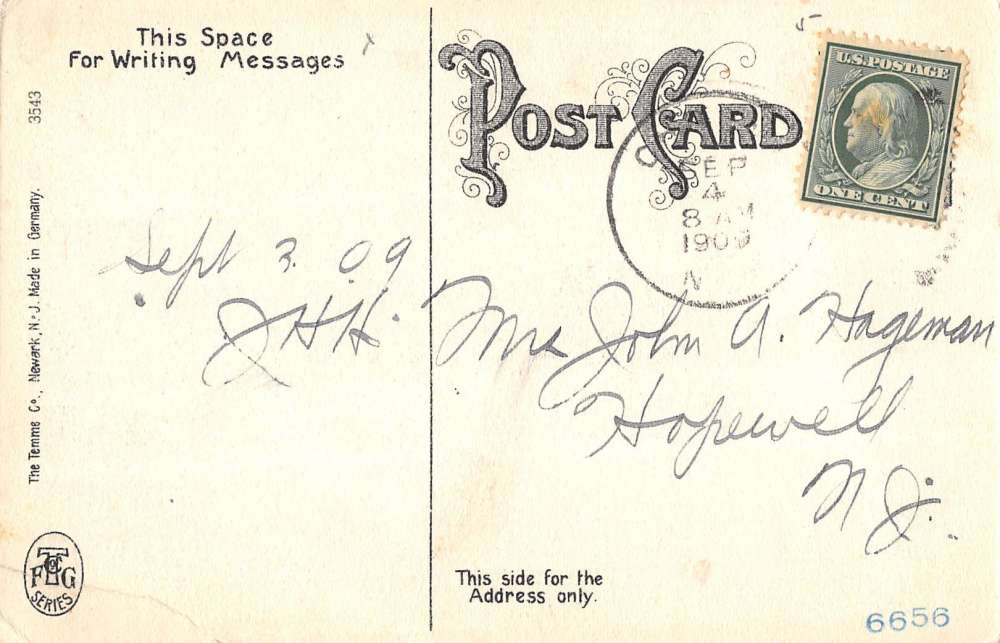 This Space
For Writing Messages
POST CARD
U.S. POSTAGE
ONE CENT
SEP
4
8 AM
1909
N
3543
The Temme Co., Newark, N-J. Made in Germany.
Sept 3. 09
JHH.
Mrs John A. Hageman
Hopewell
N J.
F T G
Co
SERIES
This side for the
Address only.
6656